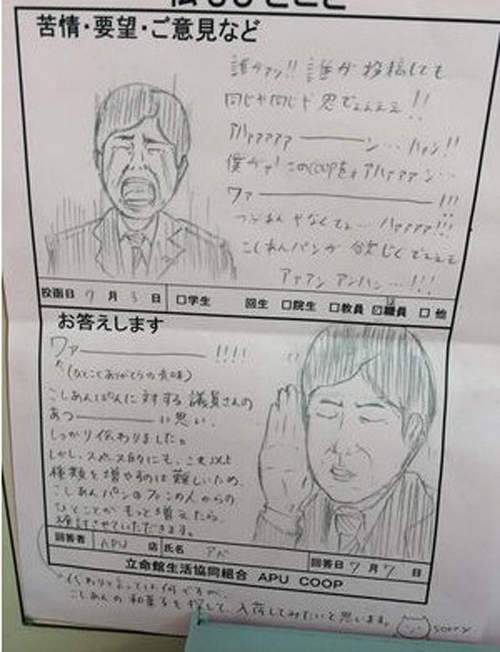 苦情・要望・ご意見など
誰がァン!! 誰が投稿しても
同じや同じや思でェェェェ!!
アハァァァァ――――ン…ハァン!!
僕がァ! このCOOPを! アハァァァン…
ワァ――――――――!!!
つぶあんやなくてェ… ハァァァァ!!!
こしあんパンが欲じくでェェェ
アァアン アンハン…!!!
投函日 7 月 3 日 □学生 回生 □院生 □教員 ☑職員 □他
お答えします
ワァ――――――――!!!!
(ひとことありがとうの意味)
こしあんぱんに対する議員さんの
あつ――――い思い、
しっかり伝わりました。
しかし、スペース的にも、これ以上
種類を増やすのは難しいため、
こしあんパンのファンの人からの
ひとことがもっと増えたら、
検討させていただきます。
回答者 APU 店 氏名 アベ 回答日 7 月 7 日
立命館生活協同組合 APU COOP
代わりと言っては何ですが、
こしあんの和菓子を探して、入荷してみたいと思います。 sorry